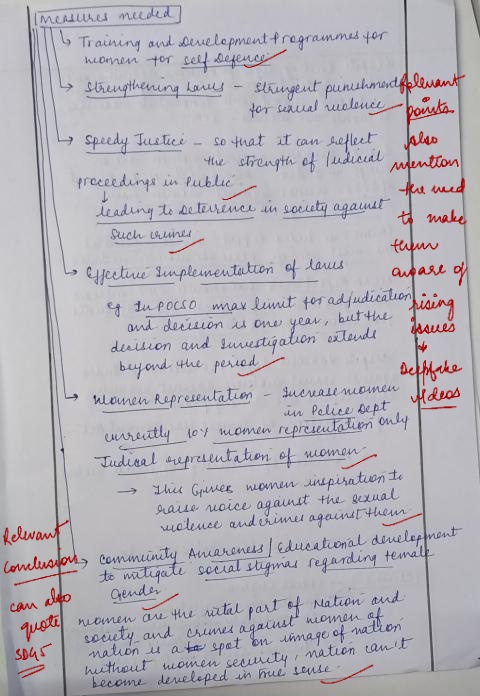 measures needed
Training and Development Programmes for
women for self Defence
Strengthening Laws - Stringent punishment
for sexual violence
Speedy Justice - so that it can reflect
the strength of Judicial
proceedings in Public.
↓
leading to Deterrence in society against
such crimes
Effective Implementation of laws
eg In POCSO max limit for adjudication
and decision is one year, but the
decision and Investigation extends
beyond the period
Women Representation - Increase women
in Police Dept
currently 10% women representation only
Judical representation of women.
→ This Gives women inspiration to
raise voice against the sexual
violence and crimes against them
community Awareness / Educational development
to mitigate social stigmas regarding female
Gender
women are the vital part of Nation and
society and crimes against women of
nation is a spot on image of nation
without women security, nation can't
become developed in true sense.
Relevant
points
Also
mention
the need
to make
them
aware of
rising
issues
↓
Deepfake
videos
Relevant
Conclusion
can also
quote
SDG5